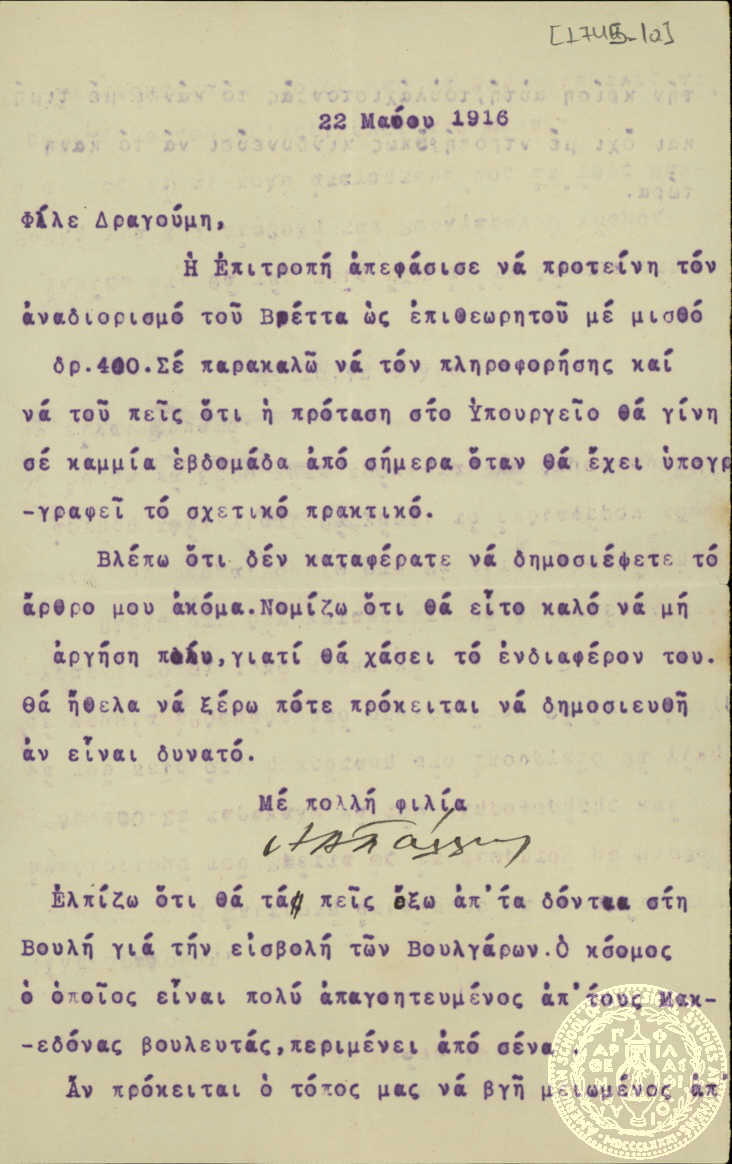 22 Μαΐου 1916
Φίλε Δραγούμη,
Ἡ Ἐπιτροπή ἀπεφάσισε νά προτείνη τόν
ἀναδιορισμό τοῦ Βρέττα ὡς ἐπιθεωρητοῦ μέ μισθό
δρ.400.Σέ παρακαλῶ νά τόν πληροφορήσης καί
νά τοῦ πεῖς ὅτι ἡ πρόταση στό Ὑπουργεῖο θά γίνη
σέ καμμία ἑβδομάδα ἀπό σήμερα ὅταν θά ἔχει ὑπογρ
-γραφεῖ τό σχετικό πρακτικό.
Βλέπω ὅτι δέν καταφέρατε νά δημοσιέψετε τό
ἄρθρο μου ἀκόμα.Νομίζω ὅτι θά εἶτο καλό νά μή
ἀργήση πολύ,γιατί θά χάσει τό ἐνδιαφέρον του.
Θά ἤθελα νά ξέρω πότε πρόκειται νά δημοσιευθῆ
ἀν εἶναι δυνατό.
Μέ πολλή φιλία
Ἐλπίζω ὅτι θά τά πεῖς ὄξω ἀπ'τά δόντια στή
Βουλή γιά τήν εἰσβολή τῶν Βουλγάρων.Ὁ κσομος
ὁ ὁποῖος εἶναι πολύ ἀπαγοητευμένος ἀπ'τους Μακ-
-εδόνας βουλευτάς,περιμένει ἀπό σένα.
Ἀν πρόκειται ὁ τόπος μας νά βγῆ μειωμένος ἀπ'